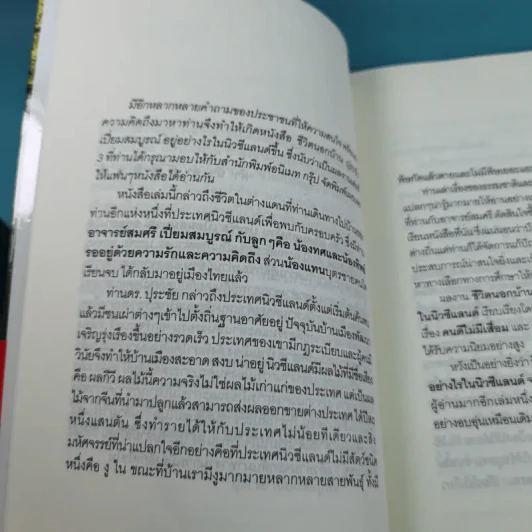 มีอีกหลากหลายคำถามของประชาชนที่ให้ความสนใจ
ความคิดถึงมาหาท่านจึงทำให้เกิดหนังสือ ชีวิตนอกบ้าน
เปี่ยมสมบูรณ์ อยู่อย่างไรในนิวซีแลนด์ขึ้น ซึ่งนับว่าเป็นผลงาน
3 ที่ท่านได้กรุณามอบให้กับสำนักพิมพ์อนิเมท กรุ๊ป จัดพิมพ์
ให้แฟนๆหนังสือได้อ่านกัน
หนังสือเล่มนี้กล่าวถึงชีวิตในต่างแดนที่ท่านเดินทางไป
ท่านอีกแห่งหนึ่งที่ประเทศนิวซีแลนด์เพื่อพบกับครอบครัว ซึ่งมี
อาจารย์สมศรี เปี่ยมสมบูรณ์ กับลูก ๆคือ น้องทศและน้อง
รออยู่ด้วยความรักและความคิดถึง ส่วนน้องแทนบุตรชาย
เรียนจบ ได้กลับมาอยู่เมืองไทยแล้ว
ท่านดร. ปุระชัย กล่าวถึงประเทศนิวซีแลนด์ตั้งแต่เริ่มต้น
แล้วมีชนเผ่าต่างๆเข้าไปตั้งถิ่นฐานอาศัยอยู่ ปัจจุบันบ้านเมืองพัฒนา
เจริญรุ่งเรืองขึ้นอย่างรวดเร็ว ประเทศของเขามีกฎระเบียบและผู้คนมี
วินัยจึงทำให้บ้านเมืองสะอาด สงบ น่าอยู่ นิวซีแลนด์มีผลไม้ที่มีชื่อเสียง
คือ ผลกีวี ผลไม้นี้ความจริงไม่ใช่ผลไม้เก่าแก่ของประเทศ แต่เป็นผล
ไม้จากจีนที่นำมาปลูกแล้วสามารถส่งผลออกขายต่างประเทศ ได้ปีละ
หนึ่งแสนตัน ซึ่งทำรายได้ให้กับประเทศไม่น้อยทีเดียวและสิ่ง
มหัศจรรย์ที่น่าแปลกใจอีกอย่างคือที่ประเทศนิวซีแลนด์ไม่มีสัตว์ชนิด
หนึ่งคือ งู ใน ขณะที่บ้านเรามีงูมากมายหลากหลายสายพันธุ์ ทั้งมี
ท่านเล่าเรื่องของธรรมชาติ
แปลกๆน่ารู้มากมายให้
ที่ท่านกับอาจารย์สมศรี ตัดสินใจ
เรียนหนังสือที่นั่น ซึ่งแน่นอน
ต่างถิ่นแต่ท่านก็ได้จัดการแก้
ประสบการณ์น่าสนใจยิ่ง
หาทางเลือกทางการศึกษา
ผลงาน ชีวิตนอกบ้าน
ในนิวซีแลนด์ เรียบเรียงโดย
เรื่อง คนดีไม่มีเสื่อม และ
ได้รับความนิยมอย่างสูง
หวังเป็นอย่างยิ่งว่า
อย่างไรในนิวซีแลนด์
ผู้อ่านมากอีกเล่มหนึ่ง
อย่างอบอุ่นเหมือนเดิม